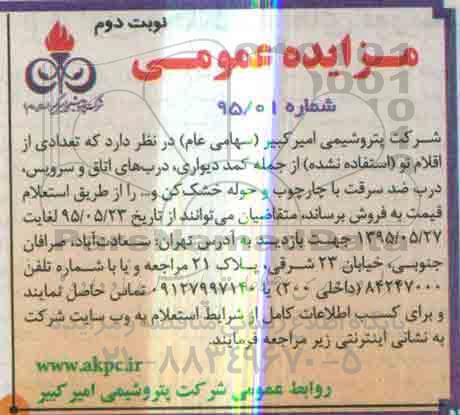 نوبت دوم
مزایده عمومی
شماره ۹۵/۰۱
شرکت پتروشیمی امیرکبیر (سهامی عام) در نظر دارد که تعدادی از
اقلام نو (استفاده نشده) از جمله کمد دیواری، درب‌های اتاق و سرویس،
درب ضد سرقت با چارچوب و حوله خشک‌کن و... را از طریق استعلام
قیمت به فروش برساند، متقاضیان می‌توانند از تاریخ ۹۵/۰۵/۲۳ لغایت
۱۳۹۵/۰۵/۲۷ جهت بازدید به آدرس تهران: سعادت‌آباد، صرافان
جنوبی، خیابان ۲۳ شرقی، پلاک ۲۱ مراجعه و یا با شماره تلفن
۸۴۲۴۷۰۰۰ (داخلی ۲۰۰) یا ۰۹۱۲۷۹۹۷۱۴۰ تماس حاصل نمایند
و برای کسب اطلاعات کامل از شرایط استعلام به وب سایت شرکت
به نشانی اینترنتی زیر مراجعه فرمایند.
www.akpc.ir
روابط عمومی شرکت پتروشیمی امیرکبیر
۰۲۱-۸۸۳۴۹۶۷۰-۵